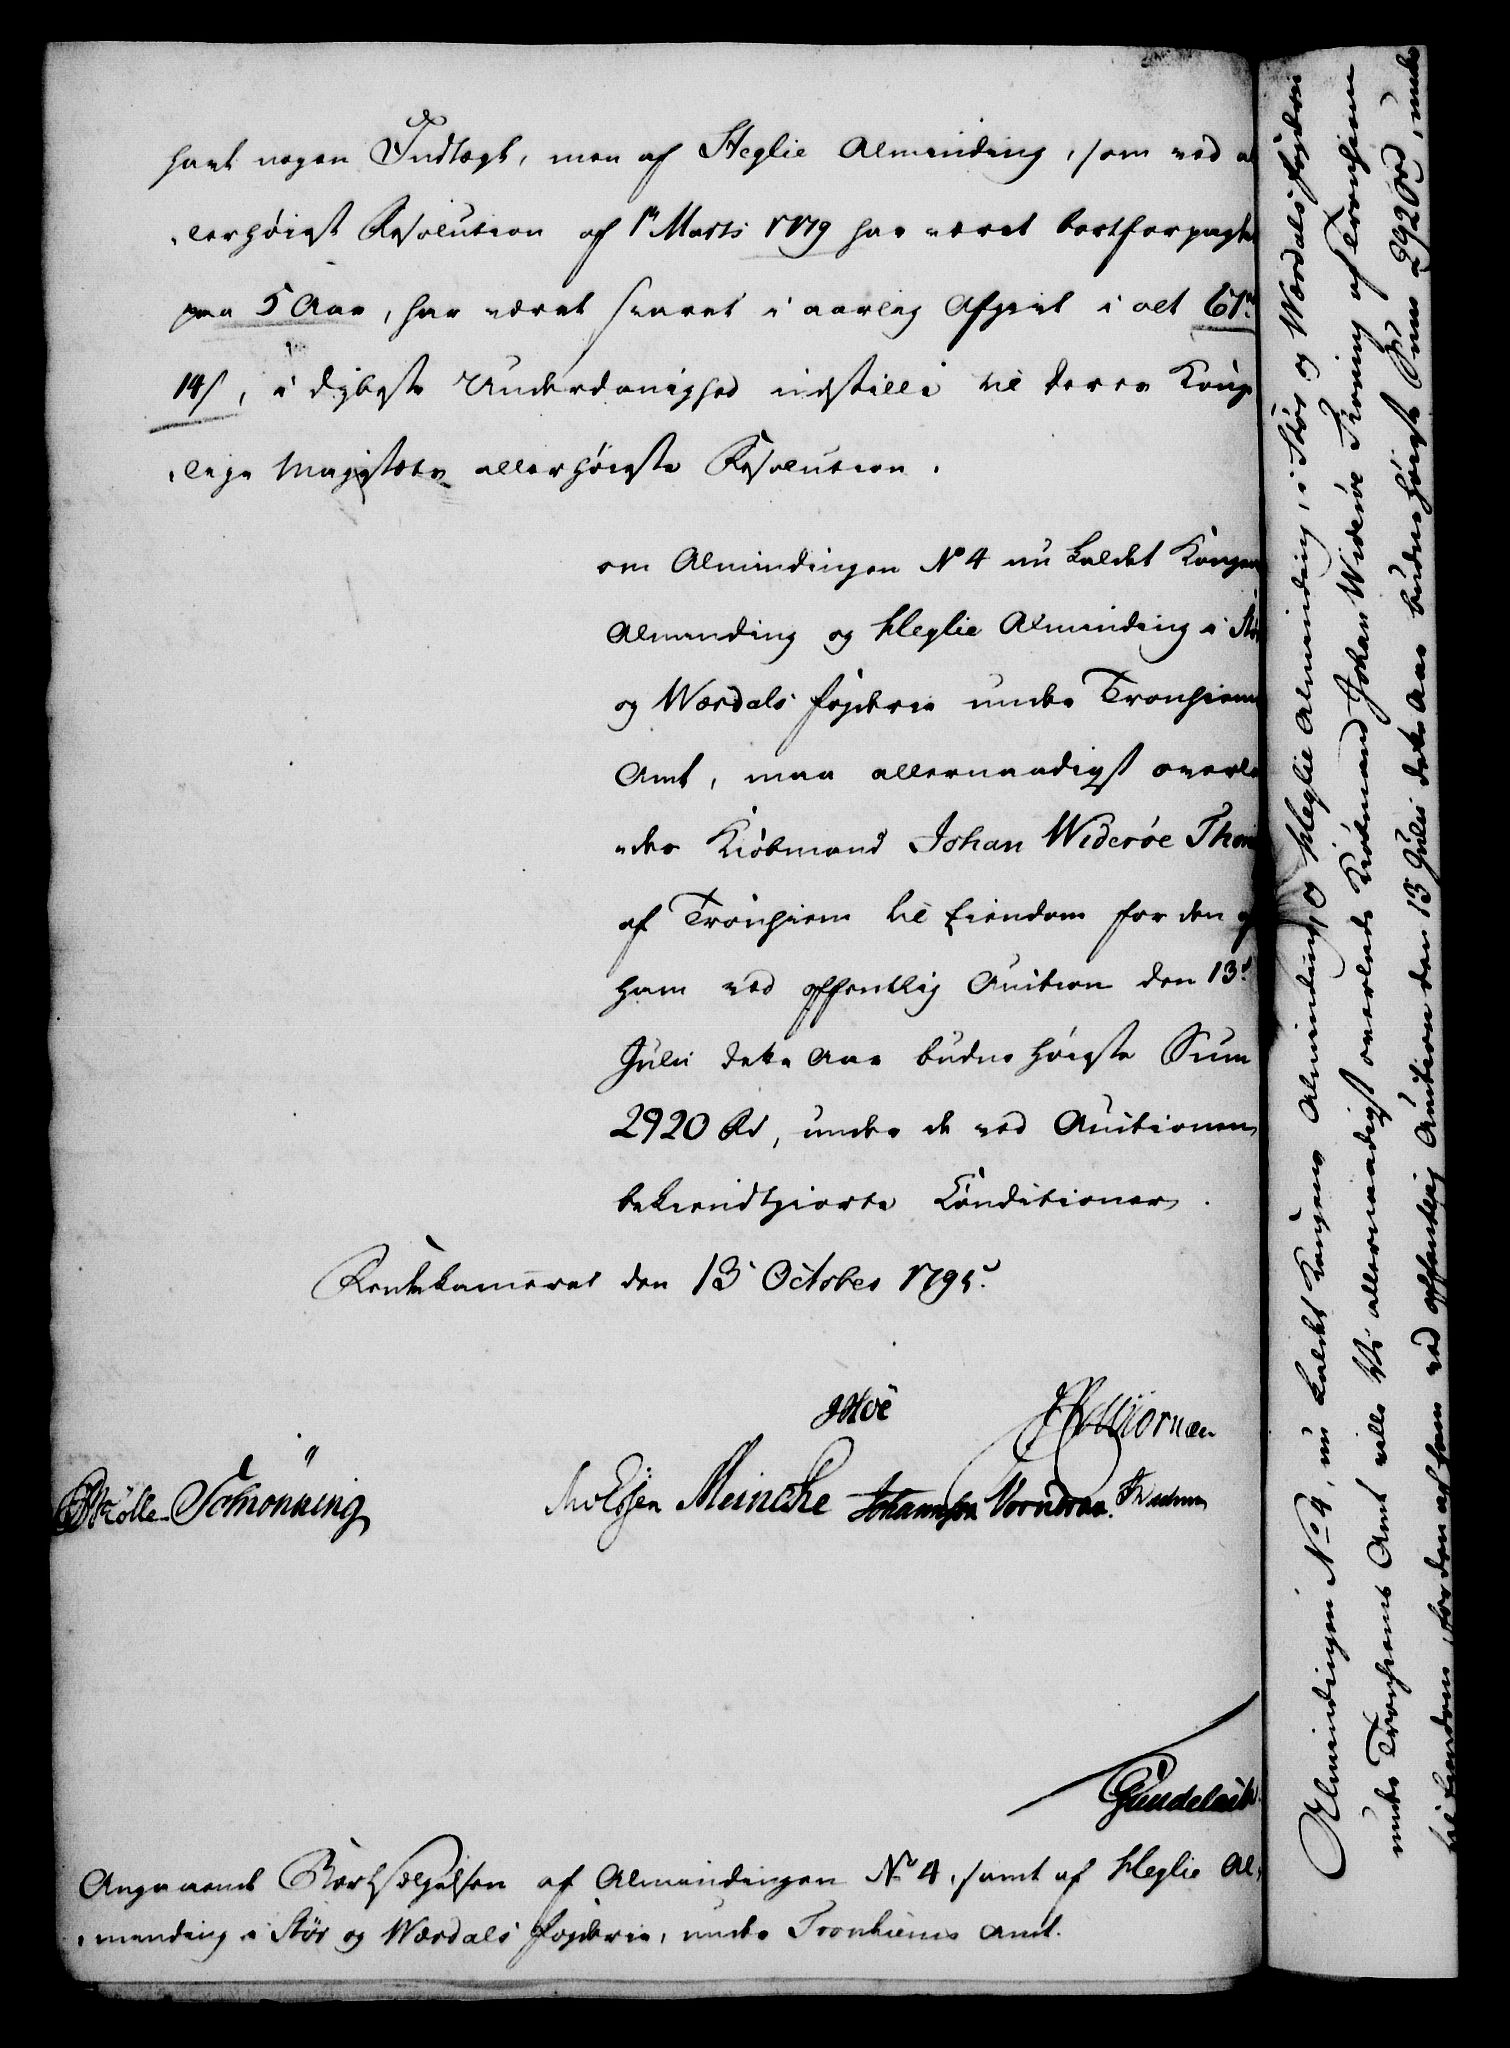 havt nogen Indtægt, men af Heglie Alminding, som ved al
„lerhøiest Resolution af 1te Marts 1779 har været bortforpagtet
paa 5 Aar, har været svaret i aarlig Afgivt i alt 61rd
14s, i dybeste Underdanighed indstille til Deres Konge
„lige Majestæts allerhøieste Resolution.
om Almindingen No 4 nu kaldet Kongens
Alminding og Heglie Alminding i Stør
og Værdals Fogderie under Tronhiems
Amt, maa allernaadigst overla
„des Kiøbmand Johan Widerøe
af Tronhiem til Eiendom for den af
ham ved offentlig Auction den 13de
Julii dette Aar budne høieste Sum
2920 Rd, under de ved Auctionen
bekiendtgiorte Conditioner.
Rentekammeret den 13 October 1795.
Schønning Meincke Johannsen
Angaaende Bortsælgelsen af Almindingen No 4, samt af Heglie Al„
„minding i Stør og Værdals Fogderie, under Tronhiems Amt.
Almindingen No 4, nu kaldet Kongens Alminding, og Heglie Alminding, i Stør og Værdals Fogderie
under Tronhiems Amt ville Vi allernaadigst overlade Kiøbmand Johan Widerøe Tronning af Tronhiem
til Eiendom, for den af ham ved offentlig Auction den 13 Julii dette Aar budne høieste Sum 2920 Rd, under